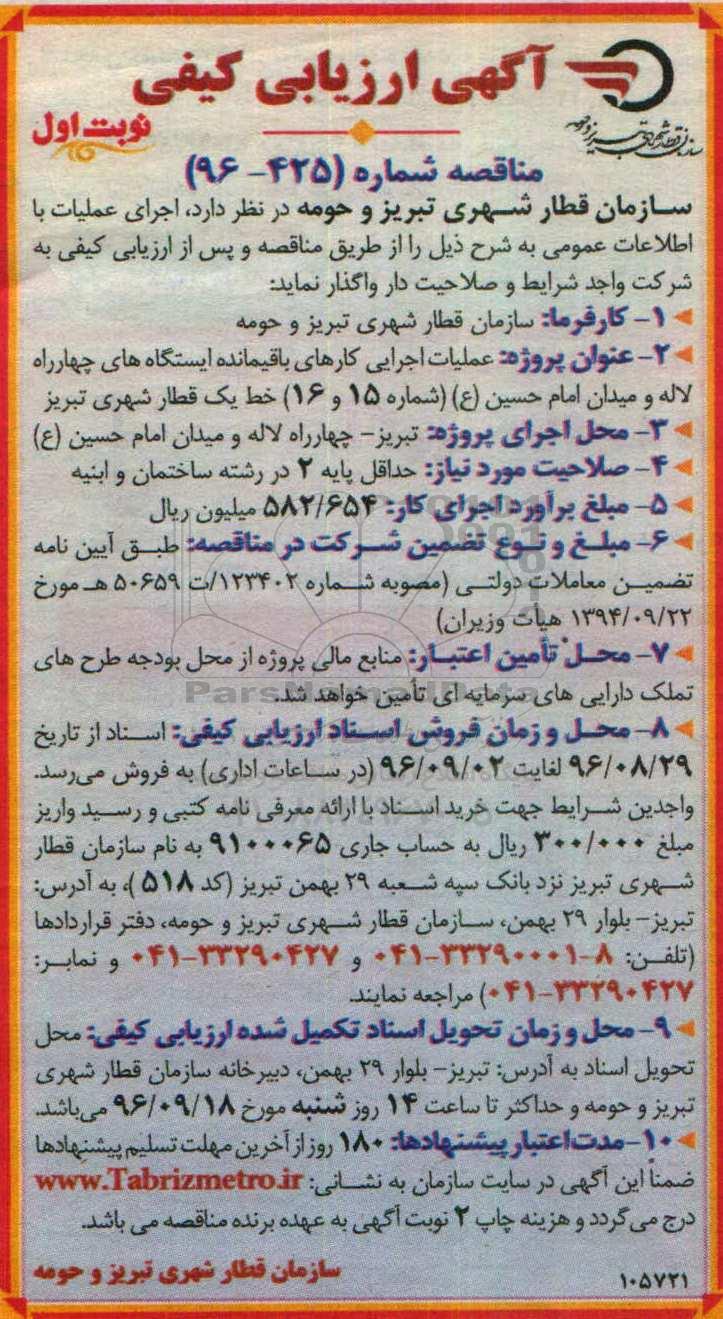 آگهی ارزیابی کیفی
نوبت اول
مناقصه شماره (۴۲۵- ۹۶)
سازمان قطار شهری تبریز و حومه در نظر دارد، اجرای عملیات با
اطلاعات عمومی به شرح ذیل را از طریق مناقصه و پس از ارزیابی کیفی به
شرکت واجد شرایط و صلاحیت دار واگذار نماید:
۱- کارفرما: سازمان قطار شهری تبریز و حومه
۲- عنوان پروژه: عملیات اجرایی کارهای باقیمانده ایستگاه های چهارراه
لاله و میدان امام حسین (ع) (شماره ۱۵ و ۱۶) خط یک قطار شهری تبریز
۳- محل اجرای پروژه: تبریز- چهارراه لاله و میدان امام حسین (ع)
۴- صلاحیت مورد نیاز: حداقل پایه ۲ در رشته ساختمان و ابنیه
۵- مبلغ برآورد اجرای کار: ۵۸۲/۶۵۴ میلیون ریال
۶- مبلغ و نوع تضمین شرکت در مناقصه: طبق آیین نامه
تضمین معاملات دولتی (مصوبه شماره ۱۲۳۴۰۲/ت ۵۰۶۵۹ هـ مورخ
۱۳۹۴/۰۹/۲۲ هیأت وزیران)
۷- محل تأمین اعتبار: منابع مالی پروژه از محل بودجه طرح های
تملک دارایی های سرمایه ای تأمین خواهد شد.
۸- محل و زمان فروش اسناد ارزیابی کیفی: اسناد از تاریخ
۹۶/۰۸/۲۹ لغایت ۹۶/۰۹/۰۲ (در ساعات اداری) به فروش می‌رسد.
واجدین شرایط جهت خرید اسناد با ارائه معرفی نامه کتبی و رسید واریز
مبلغ ۳۰۰/۰۰۰ ریال به حساب جاری ۹۱۰۰۰۶۵ به نام سازمان قطار
شهری تبریز نزد بانک سپه شعبه ۲۹ بهمن تبریز (کد ۵۱۸)، به آدرس:
تبریز- بلوار ۲۹ بهمن، سازمان قطار شهری تبریز و حومه، دفتر قراردادها
(تلفن: ۸-۳۳۲۹۰۰۰۱-۰۴۱ و ۳۳۲۹۰۴۲۷-۰۴۱ و نمابر:
۳۳۲۹۰۴۲۷-۰۴۱) مراجعه نمایند.
۹- محل و زمان تحویل اسناد تکمیل شده ارزیابی کیفی: محل
تحویل اسناد به آدرس: تبریز- بلوار ۲۹ بهمن، دبیرخانه سازمان قطار شهری
تبریز و حومه و حداکثر تا ساعت ۱۴ روز شنبه مورخ ۹۶/۰۹/۱۸ می‌باشد.
۱۰-مدت اعتبار پیشنهادها: ۱۸۰ روز از آخرین مهلت تسلیم پیشنهادها
ضمناً این آگهی در سایت سازمان به نشانی: www.Tabrizmetro.ir
درج می گردد و هزینه چاپ ۲ نوبت آگهی به عهده برنده مناقصه می باشد.
سازمان قطار شهری تبریز و حومه
۱۰۵۷۲۱